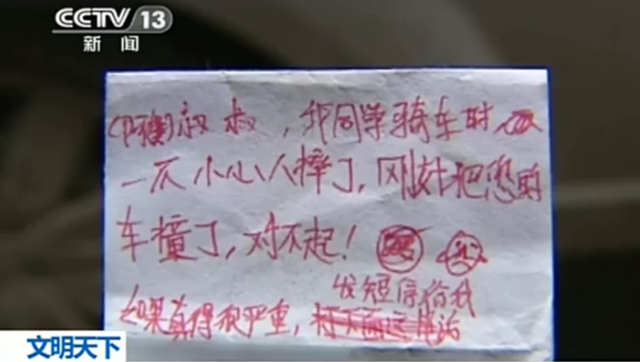 CCTV 13
新闻
(阿姨)叔叔,我同学骑车时
一不小心人摔了,刚好把您的
车撞了,对不起!
发短信给我
如果真得很严重,
文明天下